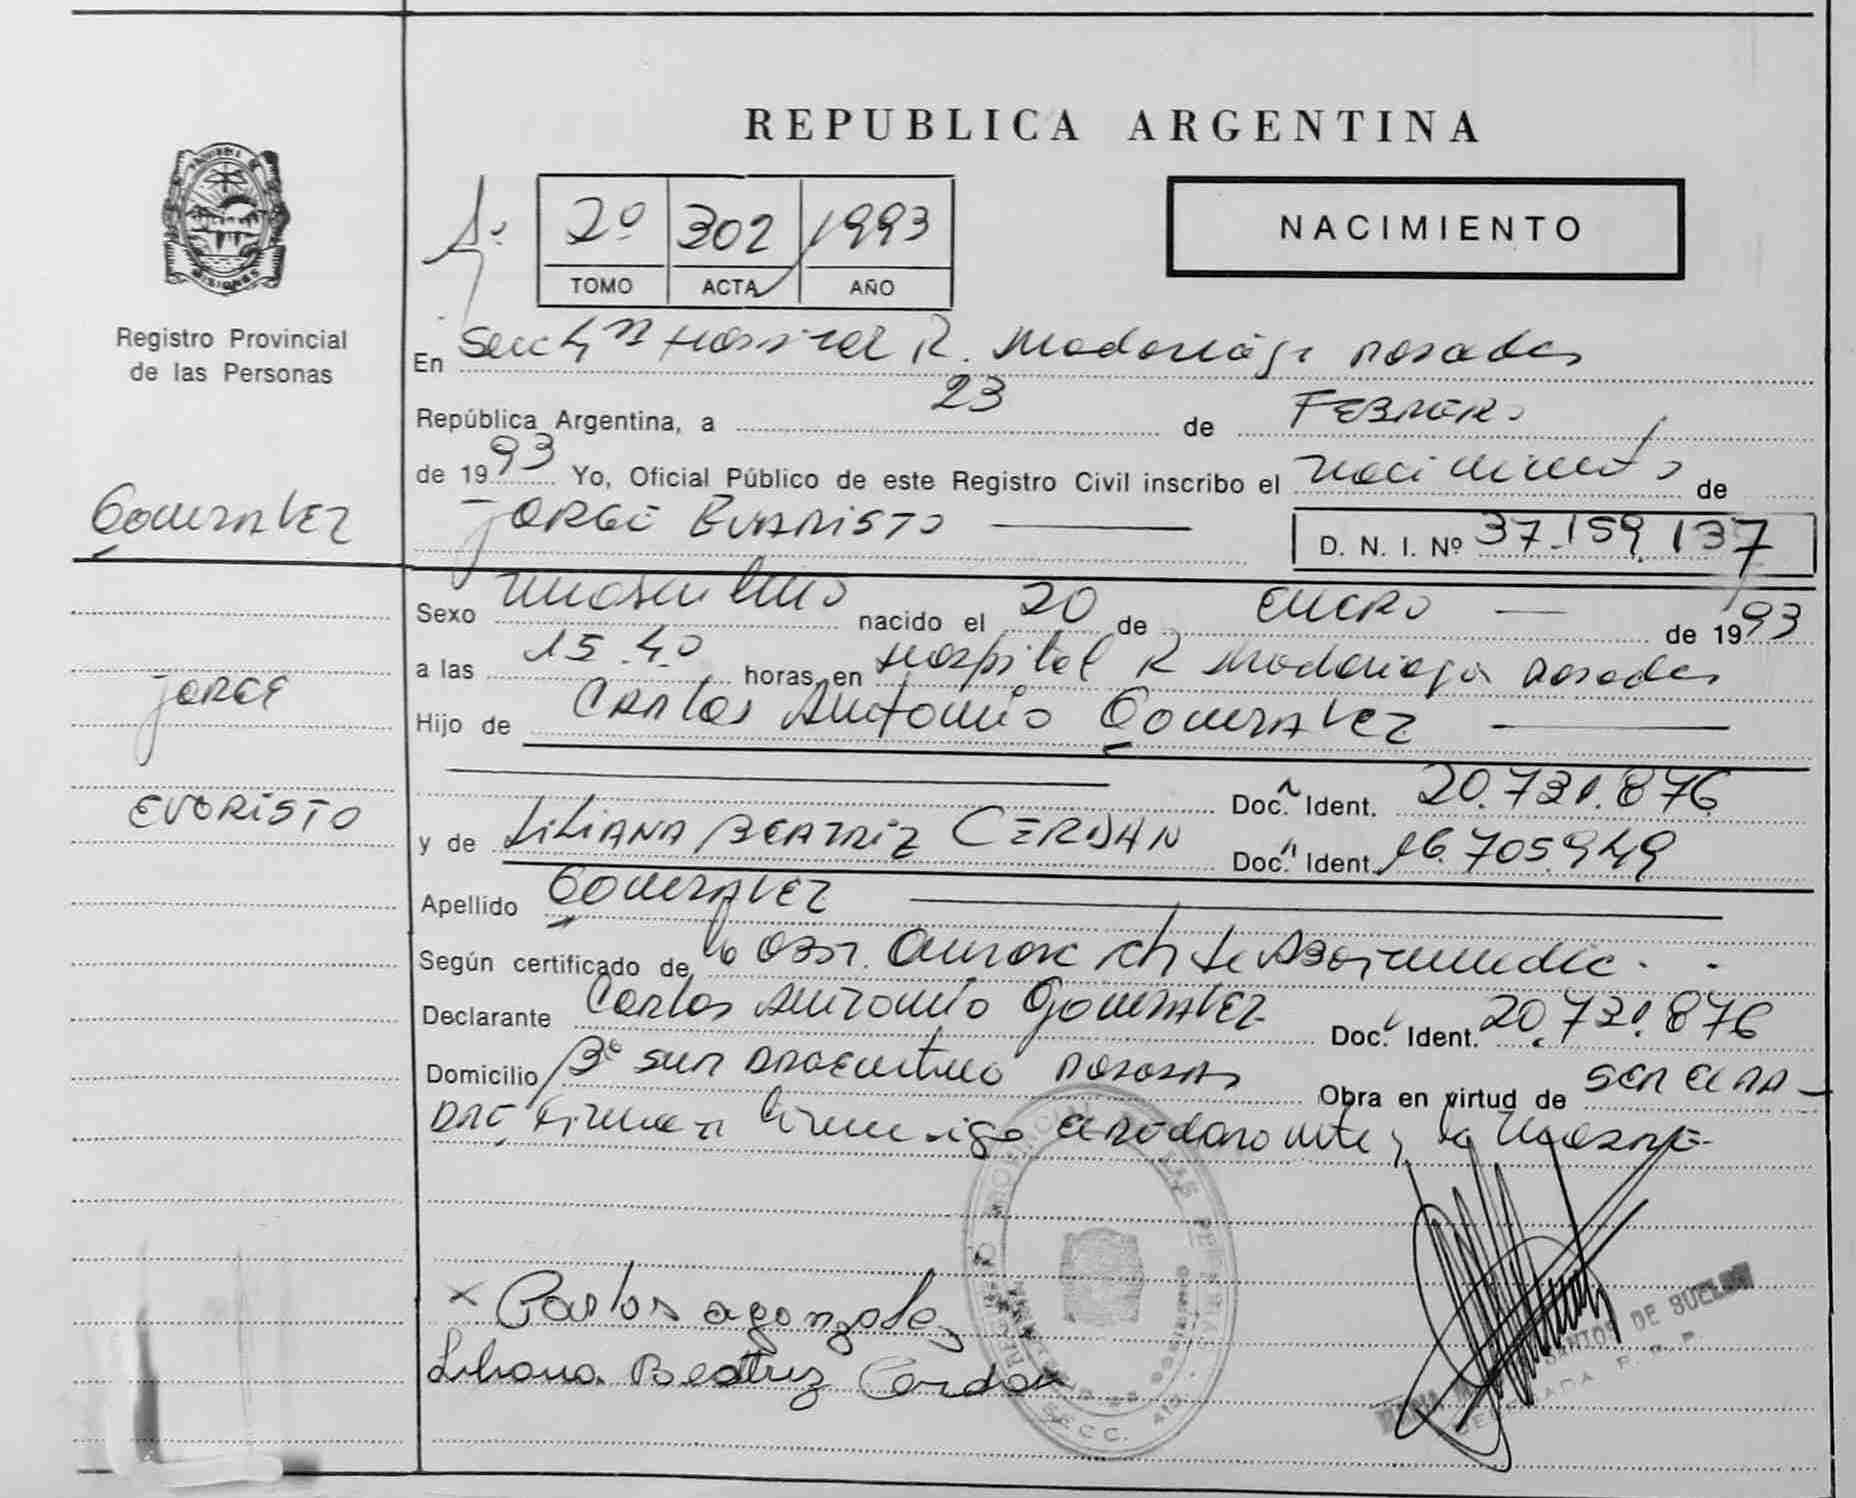 REPUBLICA ARGENTINA
MISIONES
Registro Provincial
de las Personas
2º 302 1993
TOMO ACTA AÑO
NACIMIENTO
En Hospital R. Madariaga Posadas
República Argentina, a 23 de FEBRERO
de 1993 Yo, Oficial Público de este Registro Civil inscribo el nacimiento de
GONZALEZ
JORGE EVARISTO
D. N. I. Nº 37.159.137
Sexo masculino nacido el 20 de ENERO de 1993
JORGE
a las 15.40 horas en Hospital R Madariaga Posadas
Hijo de Carlos Antonio GONZALEZ
EVARISTO
Doc. Ident. 20.731.876
y de LILIANA BEATRIZ CERDAN Doc. Ident. 16.705949
Apellido GONZALEZ
Según certificado de la Obst.
Declarante Carlos Antonio GONZALEZ Doc. Ident. 20.731.876
Domicilio Bº Sur Argentino Posadas Obra en virtud de SER EL PA-
DRE el declarante y la MADRE
Carlos a gonzalez
Liliana Beatriz Cerdan
SANTOS DE
DELEGADA R. P. P.